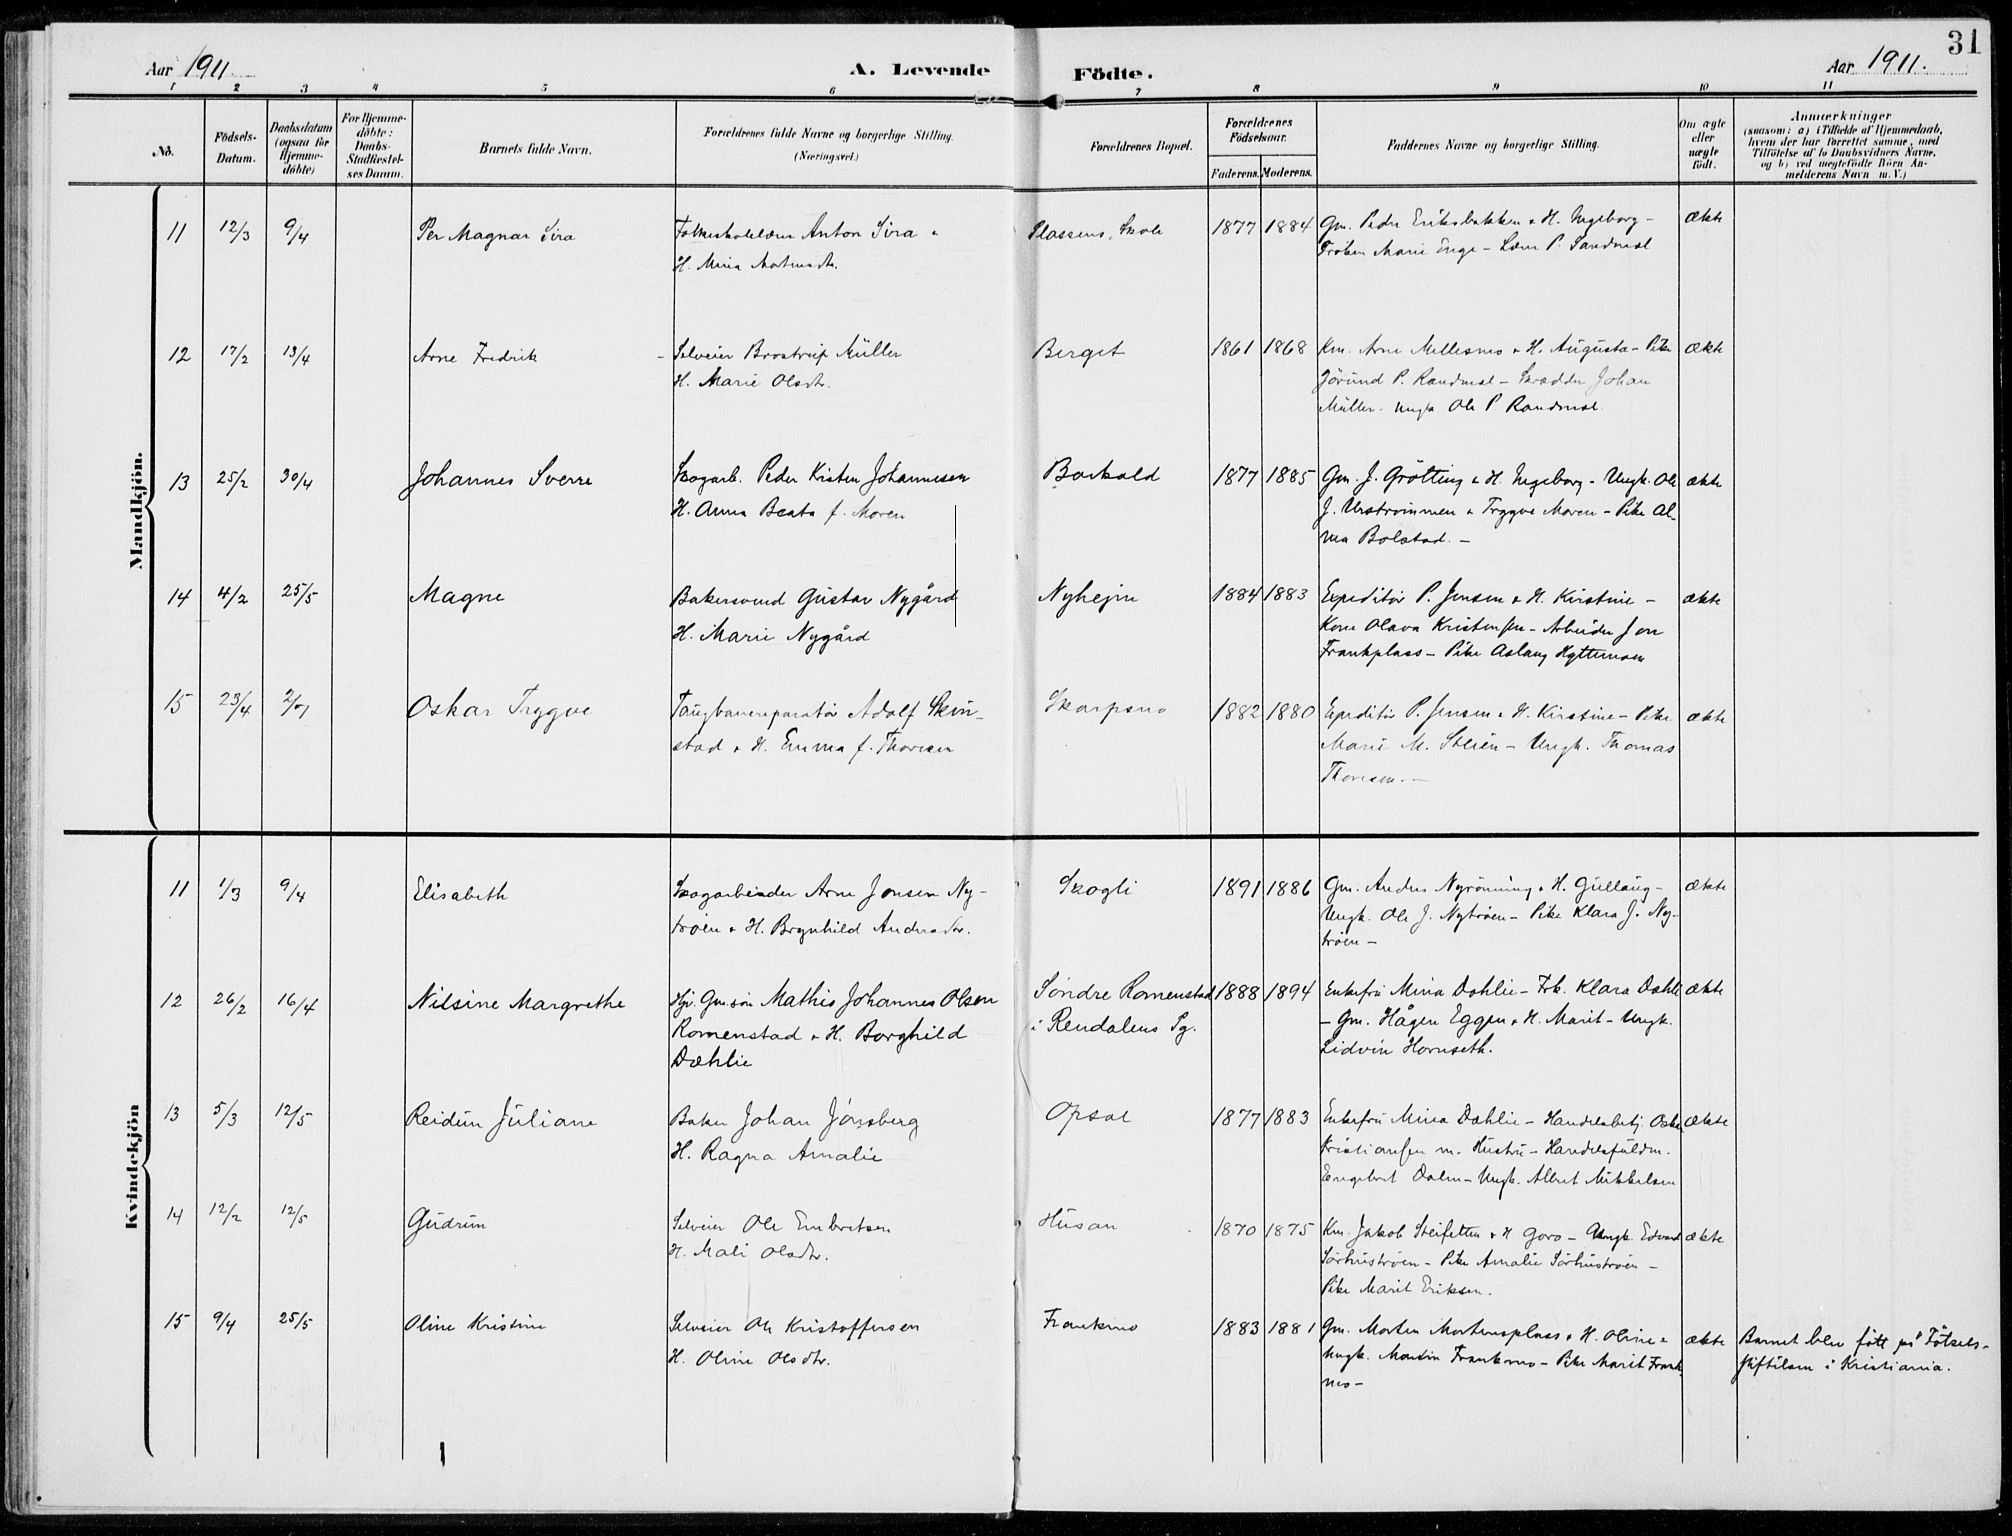 31
Aar 1911.
A. Levende
Födte.
Aar 1911.
1 2 3 4 5 6 7 8 9 10 11
No.
Födsels-
Datum.
Daabsdatum
(ogsaa for
Hjemme-
döbte)
For Hjemme-
döbte:
Daabs-
Stadfæstel-
ses Datum.
Barnets fulde Navn.
Forældrenes fulde Navne og borgerlige Stilling.
(Næringsvei.)
Forældrenes Bopæl.
Forældrenes
Födselsaar.
Faderens. Moderens.
Faddernes Navne og borgerlige Stilling.
Om ægte
eller
uægte
födt.
Anmærkninger
(saasom: a) i Tilfælde af Hjemmedaab,
hvem der har forrettet samme, med
Tilföielse af to Daabsvidners Navne,
og b) ved uegtefödte Börn An-
melderens Navn m. V.)
Mandkjön.
11 12/3 9/4 Per Magnar Sira
Folkeskolelærer Anton Sira &
H. Mina
Plassens Skole 1877 1884
Gm. Peder Eriksbakken & H. Ingeborg -
Frøken Marie Enge - Lærer P. Sandmæl
ækte
12 17/2 13/4 Arne Fredrik
Selveier Brostrup Müller
H. Marie Olsdtr.
Berget 1861 1868
Km. Arne Mellesmo & H. Augusta - Pike
Jörund P. Randmæl - Skrædder Johan
Müller - Ungk. Ole P. Randmæl.
ækte
13 25/2 30/4 Johannes Sverre
Skogarb. Peder Kristen Johannesen
H. Anna Beata f. Moren
Barkald 1877 1885
Gm. J. Grötting & H. Ingeborg - Ungk. Ole
J. Urströmmen & Trygve Moren - Pike Al-
ma Bolstad. -
ækte
14 4/2 25/5 Magne
Bakersvend Gustav Nygård
H. Marie Nygård
Nyhejm 1884 1883
Expeditör P. Jensen & H. Kirstine -
Kone Olava Kristensen - Arbeider Jon
Frankplass - Pike Aslaug Hyttemoen
ækte
15 23/4 2/7 Oskar Trygve
Taugbanereparatör Adolf Skin-
stad & H. Emma f. Thoresen
Skarpsno 1882 1880
Expeditör P. Jensen & H. Kirstine - Pike
Marie M. Steien - Ungk. Thomas
Thoresen. -
ækte
Kvindekjön
11 1/3 9/4 Elisabeth
Skogarbeider Arne Jonsen Ny-
tröen & H. Brynhild Andersdtr.
Skogli 1891 1886
Gm. Anders Nyrönning & H. Gullaug -
Ungk. Ole J. Nytröen - Pike Klara J. Ny-
tröen -
ækte
12 26/2 16/4 Nilsine Margrethe
Hj. Gm.sön Mathis Johannes Olsen
Romenstad & H. Borghild
Dæhlie
Söndre Romenstad
i Rendalens Pg.
1888 1894
Enkefru Mina Dahlie - Frk. Klara Dahlie
- Gm. Hågen Eggen & H. Marit - Ungk.
Lidvin Hornseth.
ækte
13 5/3 12/5 Reidun Juliane
Baker Johan Jönsberg
H. Ragna Amalie
Opsal 1877 1883
Enkefru Mina Dahlie - Handelsbetj. Oskar
Kristiansen m. Hustru - Handelsfuldm.
Engebret Dalen - Ungk. Albert Mikkelsen
ækte
14 12/2 12/5 Gudrun
Selveier Ole Embretsen
H. Mali Olsdtr.
Husan 1870 1875
Km. Jakob Steifetten & H Goro - Ungk. Edvard
Sörhuströen - Pike Amalie Sörhuströen -
Pike Marit Eriksen.
ækte
15 9/4 25/5 Oline Kristine
Selveier Ole Kristoffersen
H. Oline Olsdtr.
Frankmo 1883 1881
Gm. Morten Mortensplass & H. Oline -
Ungk. Martin Frankmo - Pike Marit Frank-
mo -
ækte
Barnet blev född på Fötsels-
stiftelsen i Kristiania.